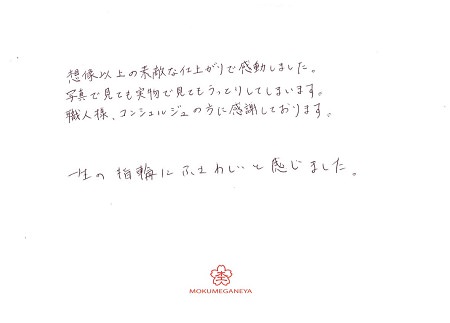 想像以上の素敵な仕上がりで感動しました。
写真で見ても実物で見てもうっとりしてしまいます。
職人様、コンシェルジュの方に感謝しております。
一生の指輪にふさわしいと感じました。
MOKUMEGANEYA